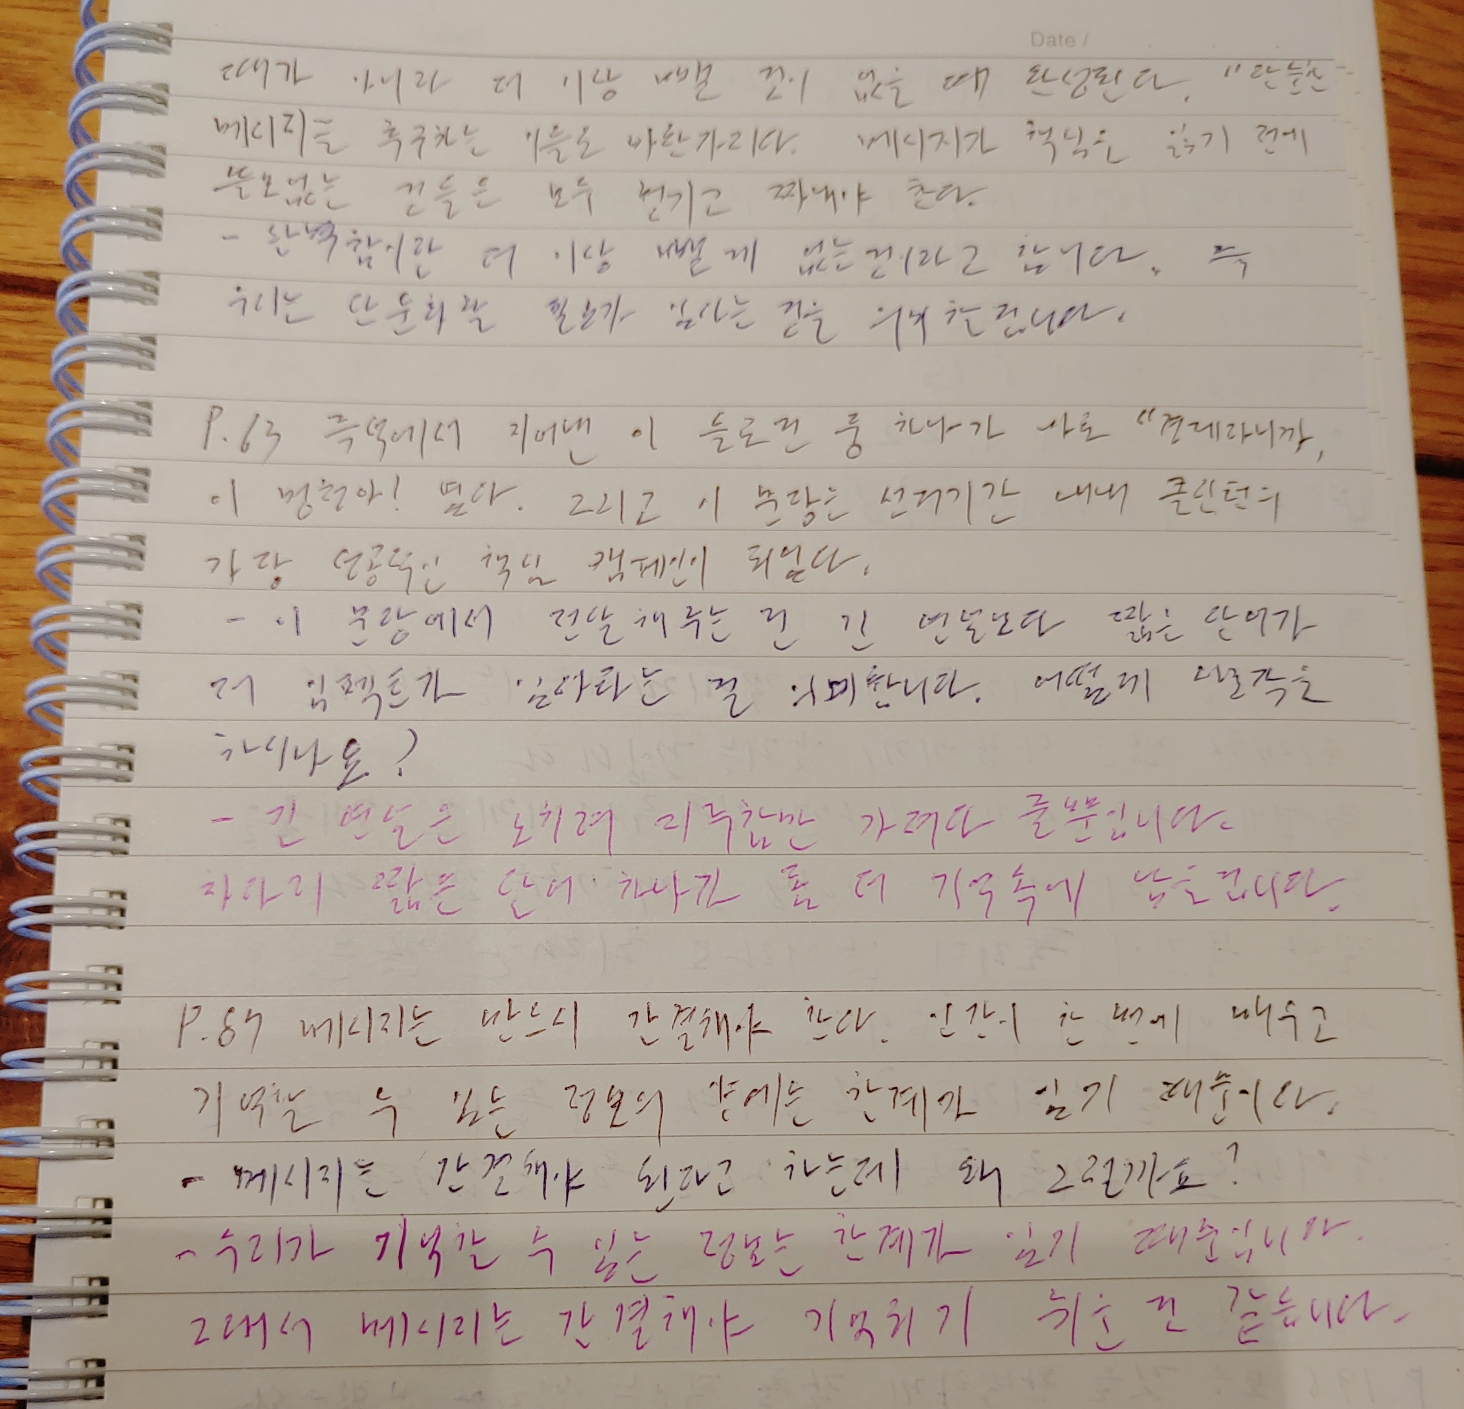 Date /
때가 아니라 더 이상 뺄 것이 없을 때 완성된다. "단순한
메시지를 추구하는 이들도 마찬가지다. 메시지가 핵심을 잃기 전에
쓸모없는 것들은 모두 벗기고 짜내야 한다.
- 완벽함이란 더 이상 뺄 게 없는것이라고 합니다. 즉
우리는 단순화할 필요가 있다는 것을 의미한겁니다.
P.63 즉석에서 지어낸 이 슬로건 중 하나가 바로 "경제라니까,
이 멍청아! 였다. 그리고 이 문장은 선거기간 내내 클린턴의
가장 성공적인 핵심 캠페인이 되었다.
- 이 문장에서 전달해주는 건 긴 연설보다 짧은 단어가
더 임팩트가 있다라는 걸 의미합니다. 어떻게 생각을
하시나요?
- 긴 연설은 오히려 지루함만 가져다 줄뿐입니다.
차라리 짧은 단어 하나가 좀 더 기억속에 남을겁니다.
메시지는 반드시 간결해야 한다. 인간이 한 번에 배우고
기억할 수 있는 정보의 양에는 한계가 있기 때문이다.
- 메시지는 간결해야 된다고 하는데 왜 그럴까요?
- 우리가 기억할 수 있는 정보는 한계가 있기 때문입니다.
그래서 메시지는 간결해야 기억하기 쉬운 것 같습니다.